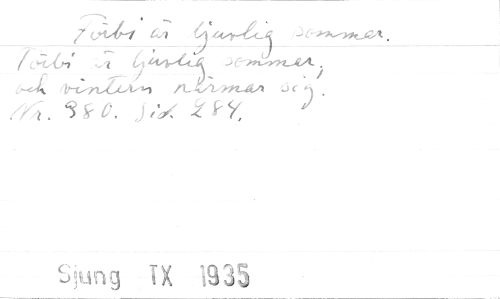 Förbi är ljuvlig sommar.
Förbi är ljuvlig sommar,
och vintern närmar sig.
Nr. 380. Sid. 284.
Sjung TX 1935